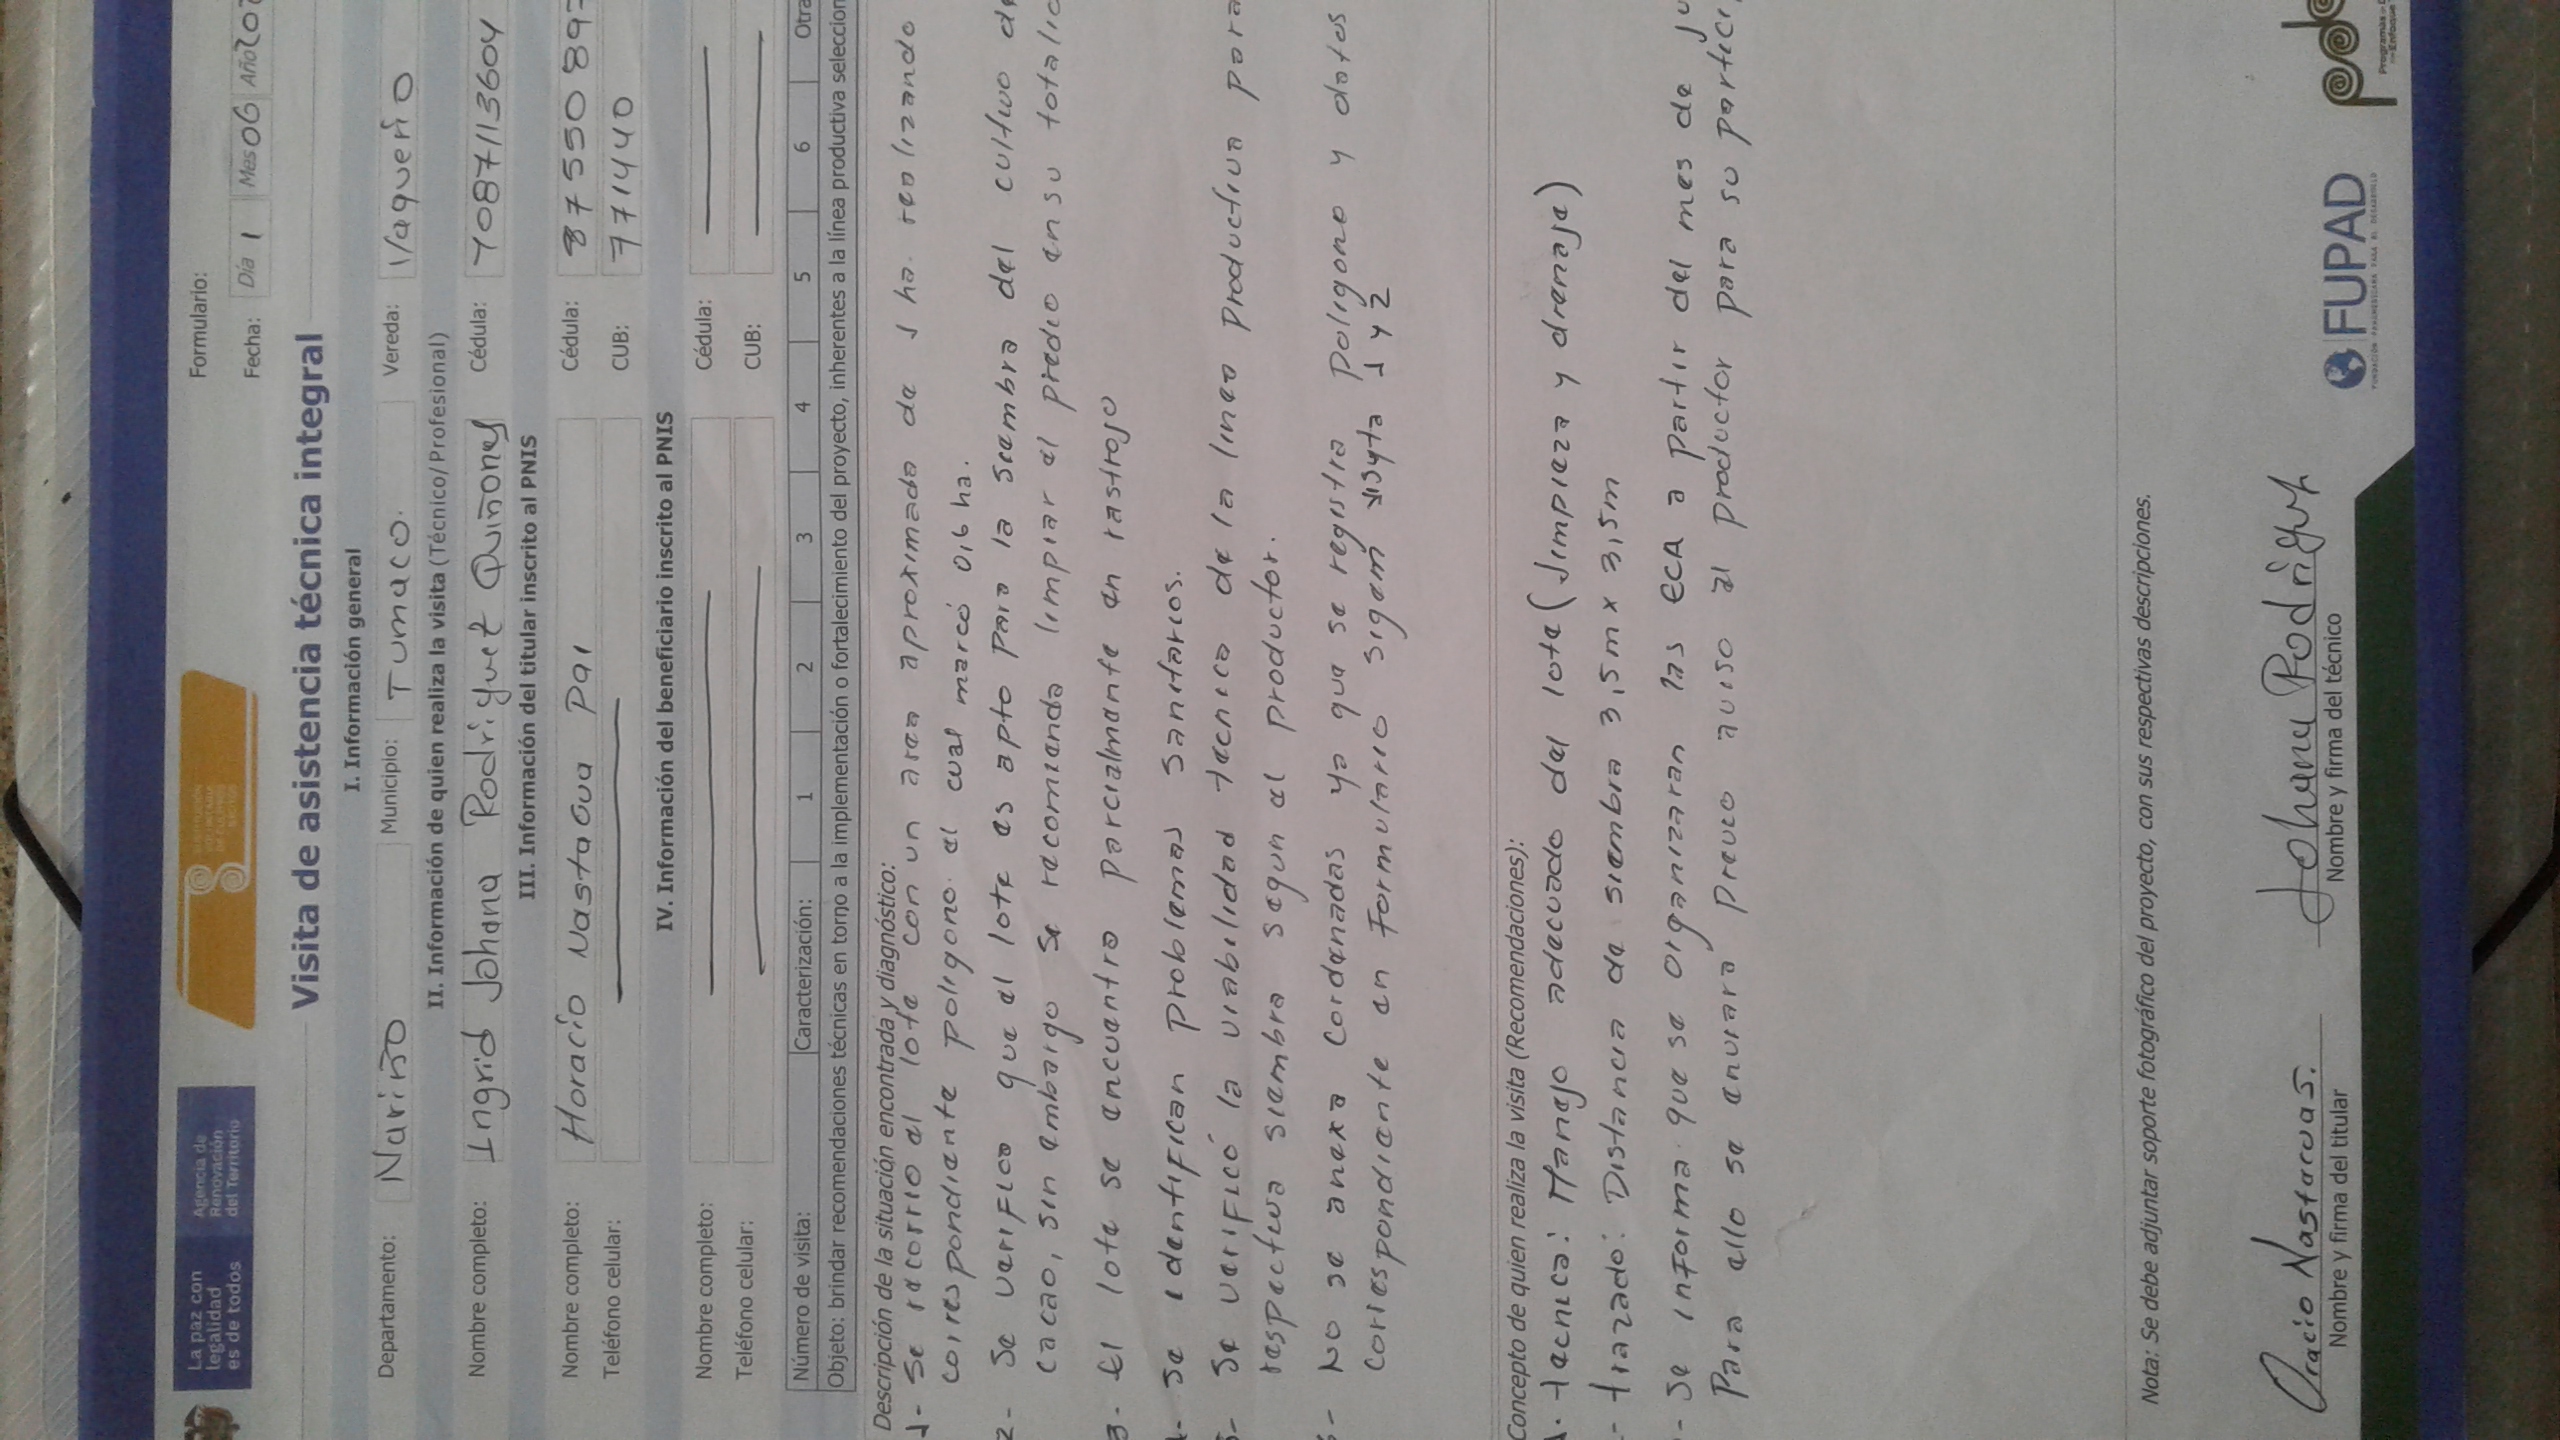 La paz con
legalidad
es de todos
Agencia de
Renovación
del Territorio
Formulario:
Fecha: Día 1 Mes 06 Año 202
Visita de asistencia técnica integral
I. Información general
Departamento: Nariño Municipio: Tumaco. Vereda: Vaquerio
II. Información de quien realiza la visita (Técnico/Profesional)
Nombre completo: Ingrid Johana Rodriguez Quiñonez Cédula: 1087113604
III. Información del titular inscrito al PNIS
Nombre completo: Horacio Nastacua Pai Cédula: 87550897
Teléfono celular: CUB: 771440
IV. Información del beneficiario inscrito al PNIS
Nombre completo: Cédula:
Teléfono celular: CUB:
Número de visita: Caracterización: 1 2 3 4 5 6 Otra
Objeto: brindar recomendaciones técnicas en torno a la implementación o fortalecimiento del proyecto, inherentes a la línea productiva seleccion
Descripción de la situación encontrada y diagnóstico:
1- Se recorrio el lote con un area aproximada de 1 ha. realizando
correspondiente poligono. el cual marcó 0,6 ha.
2- Se verifico que el lote es apto para la siembra del cultivo de
cacao, sin embargo se recomienda limpiar el predio en su totalid
3- El lote se encuentra parcialmente en rastrojo
- Se identifican problemas sanitarios.
5- Se verificó la viabilidad tecnica de la linea productiva para
respectiva siembra segun el productor.
- No se anexa cordenadas ya que se registra poligono y datos
correspondiente en formulario sigem visyta 1 y 2
Concepto de quien realiza la visita (Recomendaciones):
1. tecnica: Manejo adecuado del lote (limpieza y drenaje)
- trazado: Distancia de siembra 3,5m x 3,5m
- Se informa que se organizaran las ECA a partir del mes de ju
Para ello se enviara previo aviso al productor para su partici
Nota: Se debe adjuntar soporte fotográfico del proyecto, con sus respectivas descripciones.
Oracio Nastacuas. Johana Rodriguez
Nombre y firma del titular Nombre y firma del técnico
FUPAD
FUNDACIÓN PANAMERICANA PARA EL DESARROLLO